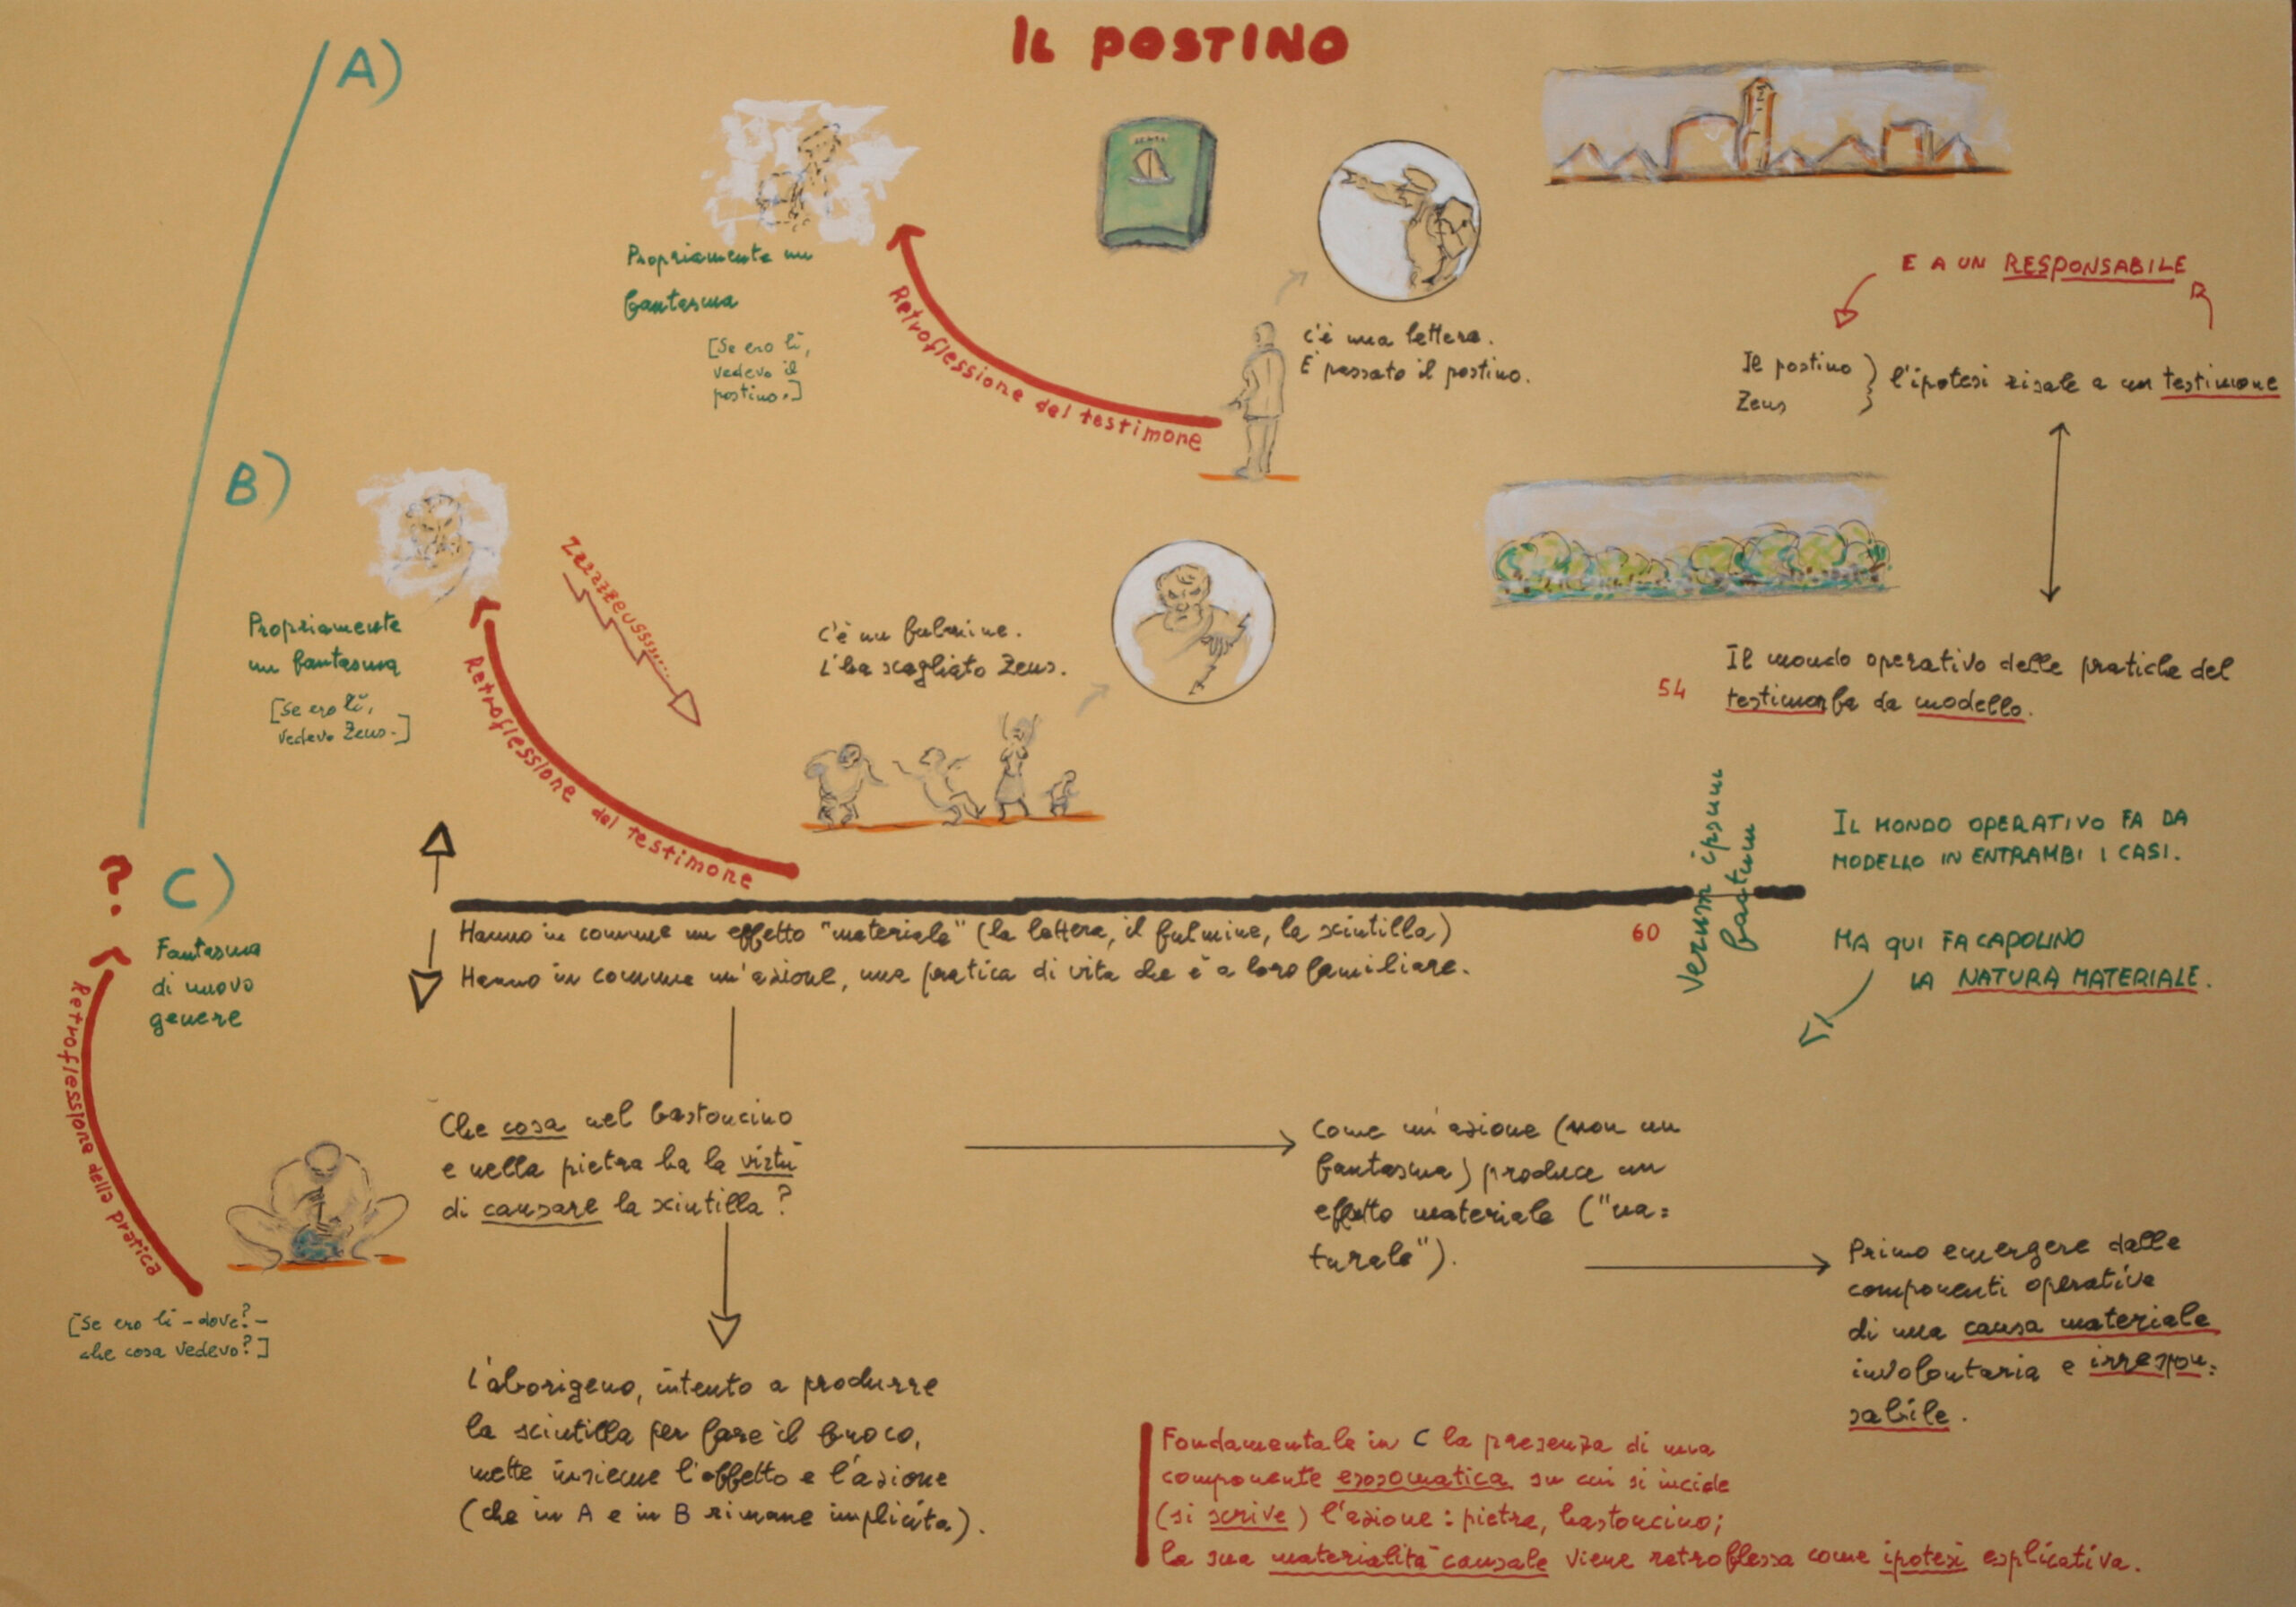 IL POSTINO
A)
Propriamente un
fantasma
[Se ero lì,
vedevo il
postino.]
Retroflessione del testimone
C'è una lettera.
È passato il postino.
E A UN RESPONSABILE
Il postino
Zeus
l'ipotesi risale a un testimone
B)
Propriamente
un fantasma
[Se ero lì,
vedevo Zeus.]
Retroflessione del testimone
ZzzzzzEUSSSS....
C'è un fulmine.
L'ha scagliato Zeus.
54
Il mondo operativo delle pratiche del
testimone fa da modello.
Verum ipsum
factum
IL MONDO OPERATIVO FA DA
MODELLO IN ENTRAMBI I CASI.
MA QUI FA CAPOLINO
LA NATURA MATERIALE.
60
Hanno in comune un effetto "materiale" (la lettera, il fulmine, la scintilla)
Hanno in comune un'azione, una pratica di vita che è a loro familiare.
?
C)
Fantasma
di nuovo
genere
Retroflessione della pratica
[Se ero lì – dove? –
che cosa vedevo?]
Che cosa nel bastoncino
e nella pietra ha la virtù
di causare la scintilla?
Come un'azione (non un
fantasma) produce un
effetto materiale ("na=
turale").
Primo emergere dalle
componenti operative
di una causa materiale
involontaria e irrespon=
sabile.
L'aborigeno, intento a produrre
la scintilla per fare il fuoco,
mette insieme l'effetto e l'azione
(che in A e in B rimane implicita).
Fondamentale in C la presenza di una
componente esosomatica su cui si incide
(si scrive) l'azione: pietra, bastoncino;
la sua materialità causale viene retroflessa come ipotesi esplicativa.